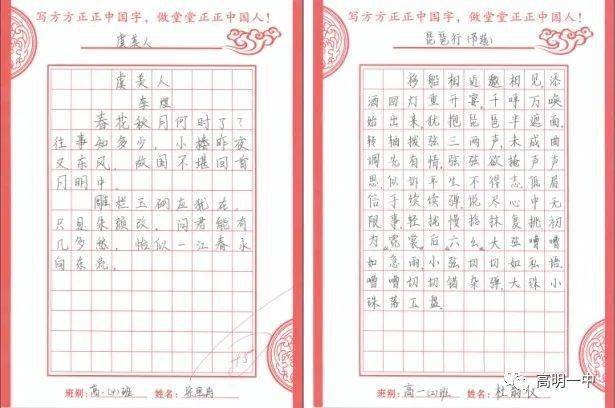 写方方正正中国字，做堂堂正正中国人！
虞美人
虞美人
李煜
春花秋月何时了？
往事知多少，小楼昨夜
又东风，故国不堪回首
月明中。
雕栏玉砌应犹在，
只是朱颜改，问君能有
几多愁，恰似一江春水
向东流。
+5
班别：高一(4)班 姓名：
写方方正正中国字，做堂堂正正中国人！
琵琶行(节选)
移船相近邀相见，添
酒回灯重开宴，千呼万唤
始出来，犹抱琵琶半遮面，
转轴拨弦三两声，未成曲
调先有情，弦弦欲掩声声
思，似诉平生不得志，低眉
信手续续弹，说尽心中无
限事，轻拢慢捻抹复挑，初
为霓裳后六幺，大弦嘈嘈
如急雨，小弦切切如私语，
嘈嘈切切错杂弹，大珠小
珠落玉盘。
班别：高一(2)班 姓名：杜
高明一中